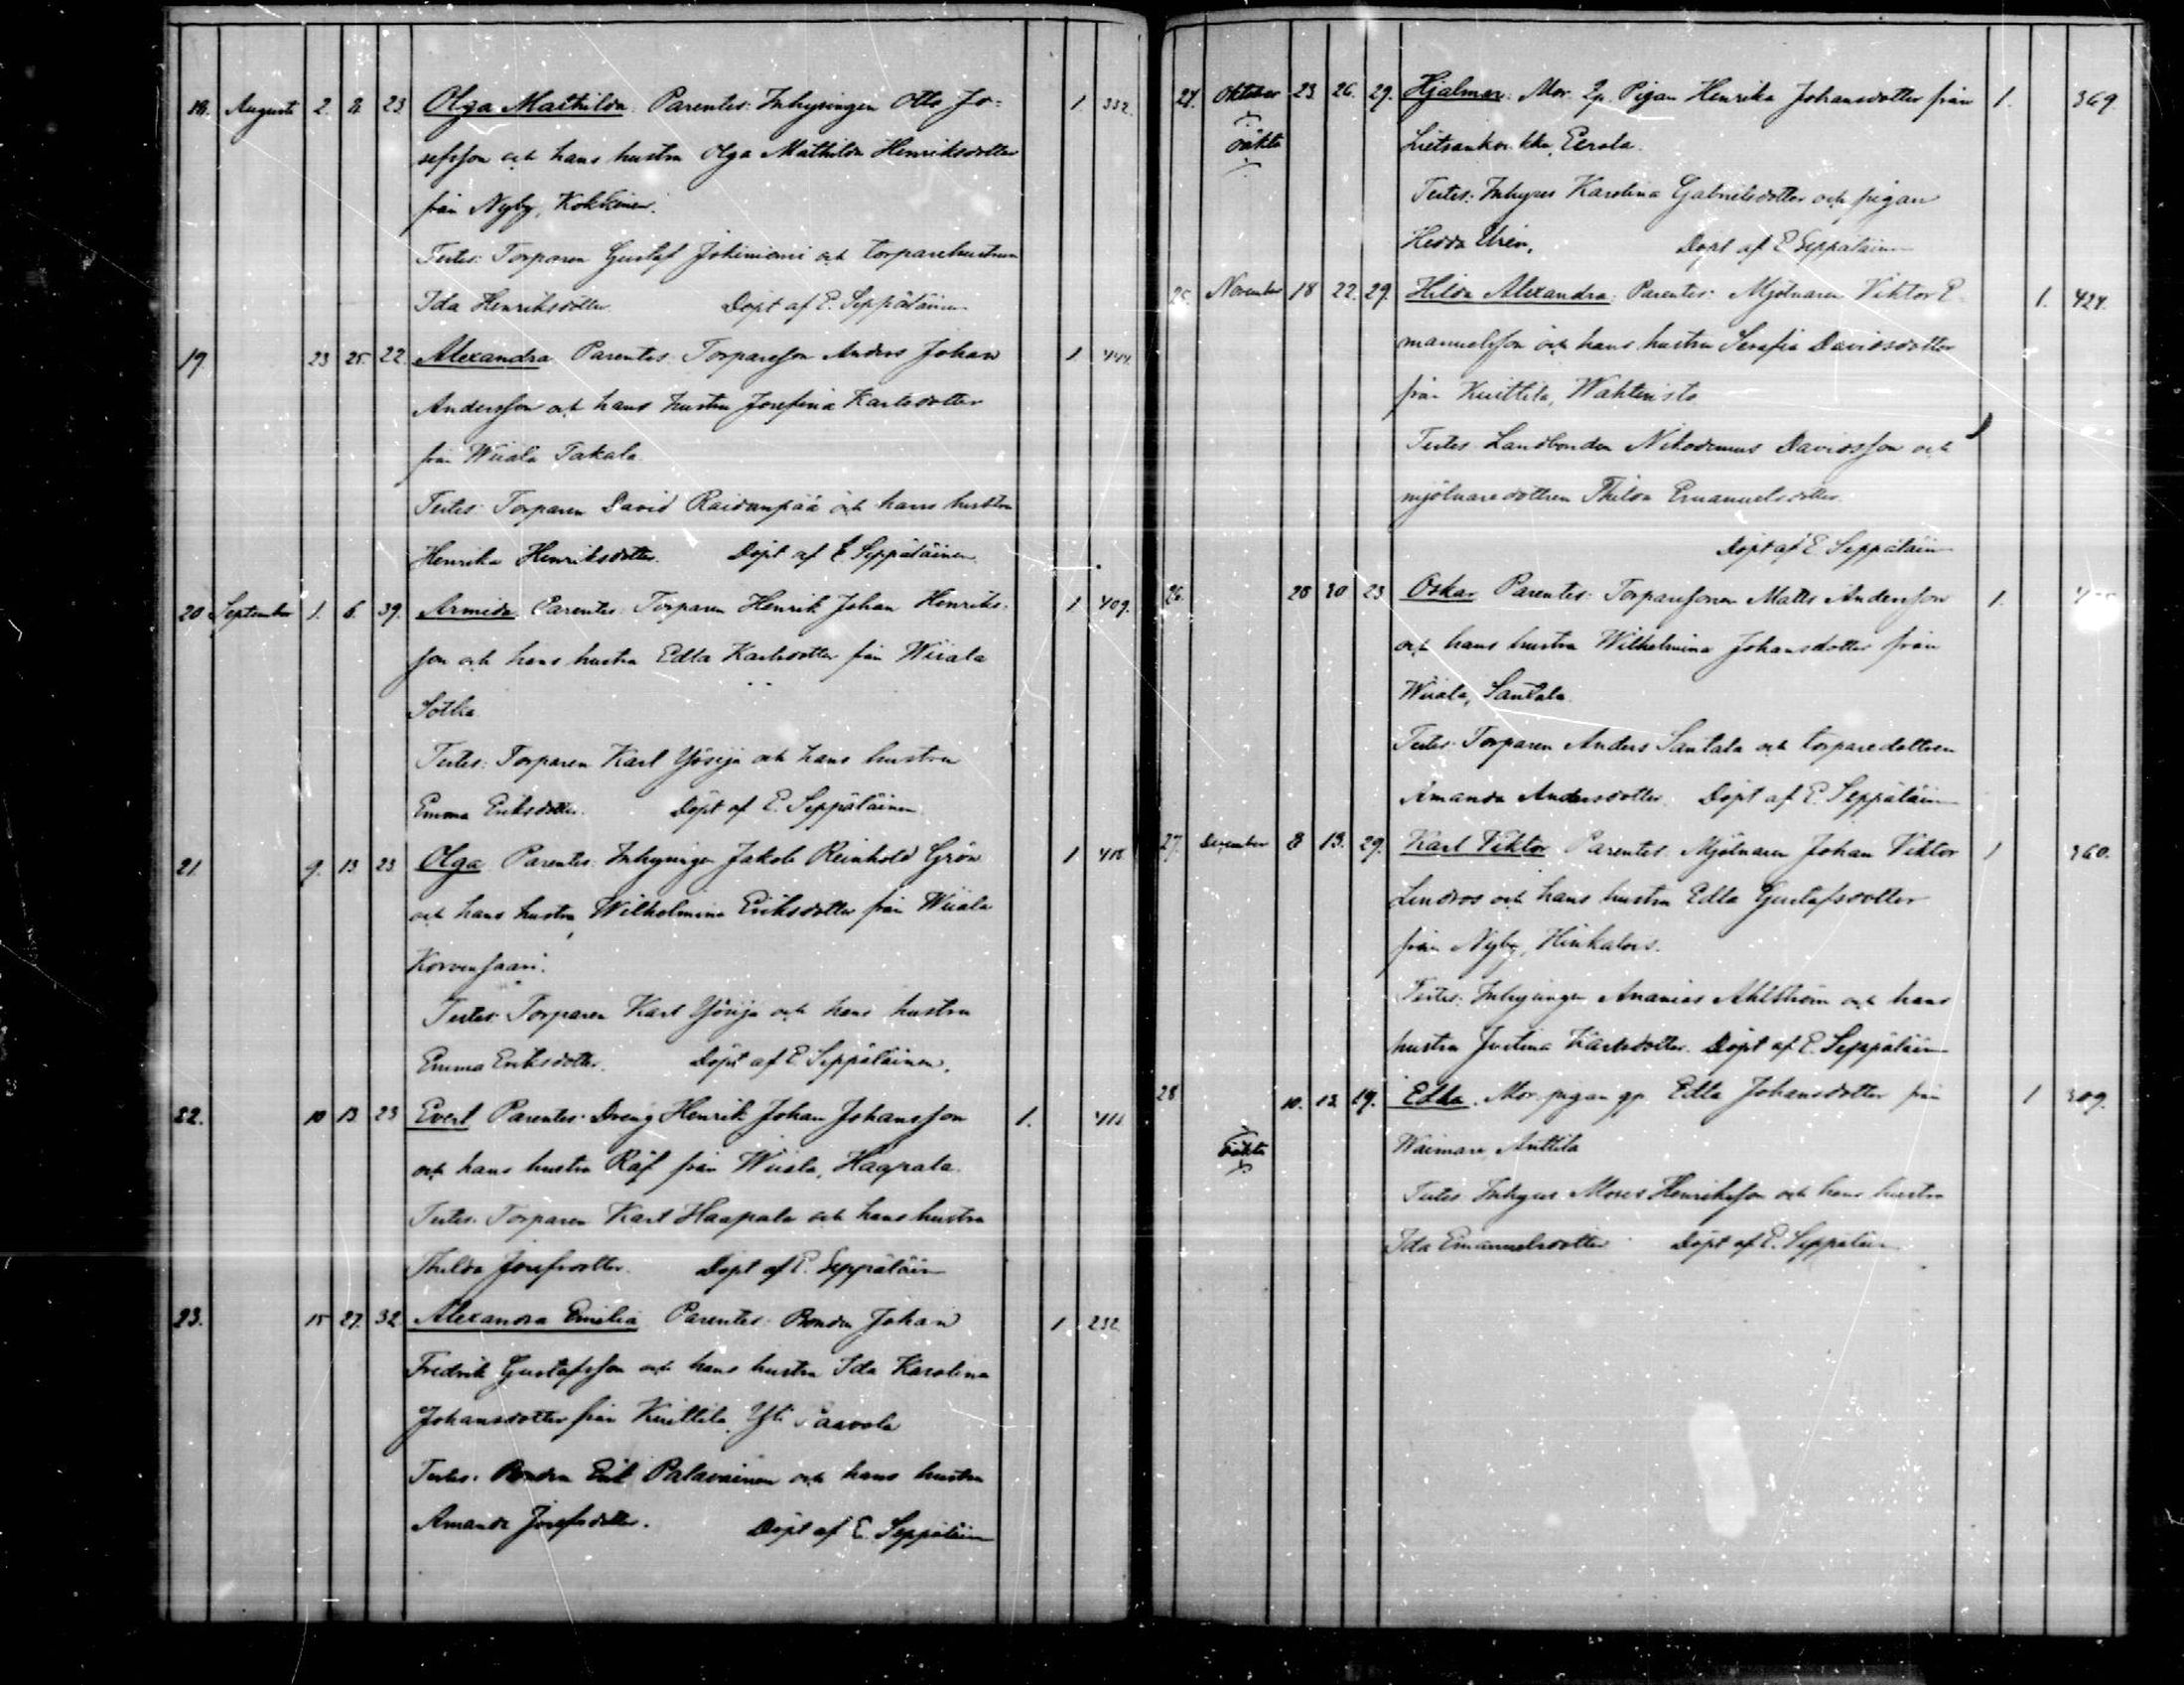 18. Augusti 2. 8. 23 Olga Mathilda. Parentes: Inhysingen Otto Jo= 1 332.
sefsson och hans hustru Olga Mathilda Henriksdotter
från Nyby, Kokkinen.
Testes: Torparen Gustaf Jokiniemi och torparehustrun
Ida Henriksdotter. Döpt af E. Seppäläinen
19. 23 25. 22. Alexandra Parentes: Torpareson Anders Johan 1 444.
Andersson och hans hustru Josefina Karlsdotter
från Wiiala Takala.
Testes: Torparen David Raidanpää och hans hustru
Henrika Henriksdotter. Döpt af E. Seppäläinen.
20 September 1. 6. 39. Armida Parentes: Torparen Henrik Johan Henriks- 1 409.
son och hans hustru Edla Karlsdotter från Wiiala
Sotka
Testes: Torparen Karl Yösijä och hans hustru
Emma Eriksdotter. Döpt af E. Seppäläinen
21. 9. 13 23. Olga Parentes: Inhysingen Jakob Reinhold Grön 1
och hans hustru Wilhelmina Eriksdotter från Wiiala
Korvensaari.
Testes: Torparen Karl Yösijä och hans hustru
Emma Eriksdotter. Döpt af E. Seppäläinen.
22. 10 13. 23 Evert Parentes: Dreng Henrik Johan Johansson 1.
och hans hustru från Wiiala, Haapala.
Testes: Torparen Karl Haapala och hans hustru
Thilda Josefsdotter. Döpt af E. Seppäläin
23. 15 27. 32 Alexandra Emilia Parentes: Bonden Johan 1 232
Fredrik Gustafsson och hans hustru Ida Karolina
Johansdotter från Kuittila, Yli Paavola
Testes: Bonden Erik Palavainen och hans hustru
Amanda Josefsdotter. Döpt af E. Seppäläin
24. Oktober 23. 26. 29. Hjalmar. Mor: Qp. Pigan Henrika Johansdotter från 1. 369.
oäkta Eerola.
Testes: Inhyses Karolina Gabrielsdotter och pigan
Hedda Uren. Döpt af E Seppäläinen
25. November 18 22. 29. Hilda Alexandra: Parentes: Mjölnaren Viktor E- 1. 424.
manuelsson och hans hustru Serafia Davidsdotter
från Kuittila, Wahteristo
Testes: Landbonden Nikodemus Davidsson och
mjölnaredottren Thilda Emanuelsdotter.
Döpt af E Seppäläin
26. 28 30 23 Oskar Parentes: Torparesonen Matts Andersson 1.
och hans hustru Wilhelmina Johansdotter från
Wiiala, Santala.
Testes: Torparen Anders Santala och torparedottren
Amanda Andersdotter. Döpt af E. Seppäläin
27. December 8 13. 29. Karl Viktor Parentes: Mjölnaren Johan Viktor 1 360.
Lindros och hans hustru Edla Gustafsdotter
från Nyby,
Testes: Inhysingen Ananias Ahlström och hans
hustru Justina Karlsdotter. Döpt af E. Seppäläin
28 10. 13. 19. Edla. Mor: pigan qp. Edla Johansdotter från 1 309.
oäkta Waimaro, Anttila
Testes: Inhyses Moses Henriksson och hans hustru
Ida Emanuelsdotter Döpt af E. Seppäläin